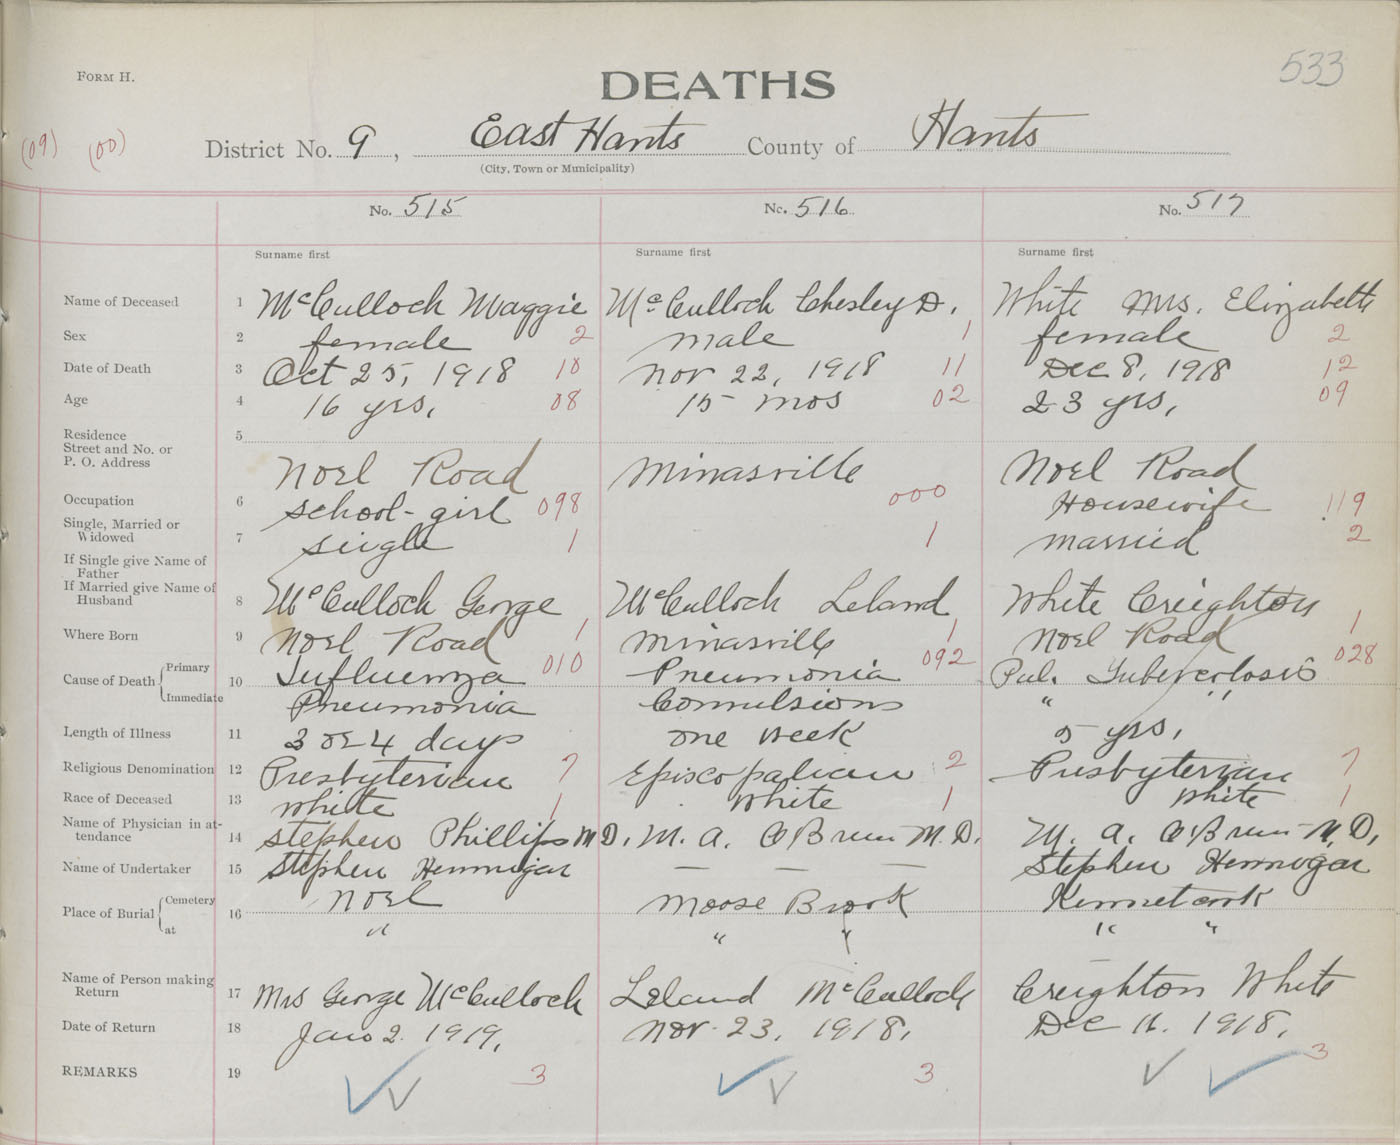 533
FORM H.
DEATHS
(09) (00) District No. 9, East Hants County of Hants
(City, Town or Municipality)
No. 515 No. 516 No. 517
Surname first Surname first Surname first
Name of Deceased 1 McCulloch Maggie McCulloch Chesley D. White Mrs. Elizabeth
Sex 2 female 2 male 1 female 2
Date of Death 3 Oct 25, 1918 10 Nov 22, 1918 11 Dec 8, 1918 12
Age 4 16 yrs, 08 15 mos 02 23 yrs, 09
Residence 5
Street and No. or
P. O. Address Noel Road Minasville Noel Road
Occupation 6 school-girl 098 000 Housewife 119
Single, Married or
Widowed 7 single 1 1 married 2
If Single give Name of
Father
If Married give Name of
Husband 8 McCulloch George McCulloch Leland White Creighton
Where Born 9 Noel Road 1 Minasville 1 Noel Road 1
Cause of Death Primary 10 Influenza 010 Pneumonia 092 Pul. Tuberculosis 028
Immediate Pneumonia Convulsions " "
Length of Illness 11 3 or 4 days one week 5 yrs,
Religious Denomination 12 Presbyterian 7 Episcopalian 2 Presbyterian 7
Race of Deceased 13 white 1 White 1 White 1
Name of Physician in at-
tendance 14 Stephen Phillips M.D. M. A. O'Brien M.D. M. A. O'Brien M.D.
Name of Undertaker 15 Stephen Hennigar — — — Stephen Hennigar
Place of Burial Cemetery 16 Noel Moose Brook Kennetcook
at " " " " "
Name of Person making
Return 17 Mrs George McCulloch Leland McCulloch Creighton White
Date of Return 18 Jan 2. 1919. Nov. 23. 1918. Dec 11. 1918.
REMARKS 19 3 3 3